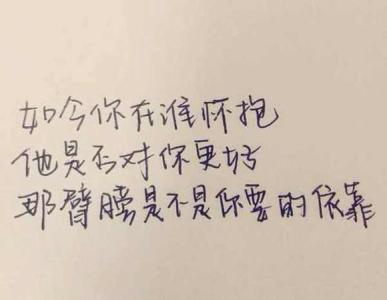 如今你在谁怀抱
他是否对你更好
那臂膀是不是你要的依靠